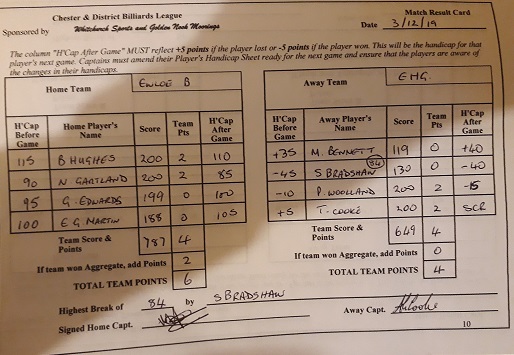 Chester & District Billiards League
Match Result Card
Sponsored by Whitchurch Sports and Golden Nook Moorings
Date 3/12/19
The column "H'Cap After Game" MUST reflect +5 points if the player lost or -5 points if the player won. This will be the handicap for that
player's next game. Captains must amend their Player's Handicap Sheet ready for the next game and ensure that the players are aware of
the changes in their handicaps.
Home Team EWLOE B
H'Cap Before Game Home Player's Name Score Team Pts H'Cap After Game
115 B HUGHES 200 2 110
90 N GARTLAND 200 2 85
95 G. EDWARDS 199 0 100
100 E G MARTIN 188 0 105
Team Score & Points 787 4
If team won Aggregate, add Points 2
TOTAL TEAM POINTS 6
Away Team EHG.
H'Cap Before Game Away Player's Name Score Team Pts H'Cap After Game
+35 M. BENNETT 119 0 +40
-45 S BRADSHAW (84) 130 0 -40
-10 P. WOOLLAND 200 2 -15
+5 T. COOKE 200 2 SCR
Team Score & Points 649 4
If team won Aggregate, add Points 0
TOTAL TEAM POINTS 4
Highest Break of 84 by S BRADSHAW
Signed Home Capt.
Away Capt. Cooke
10